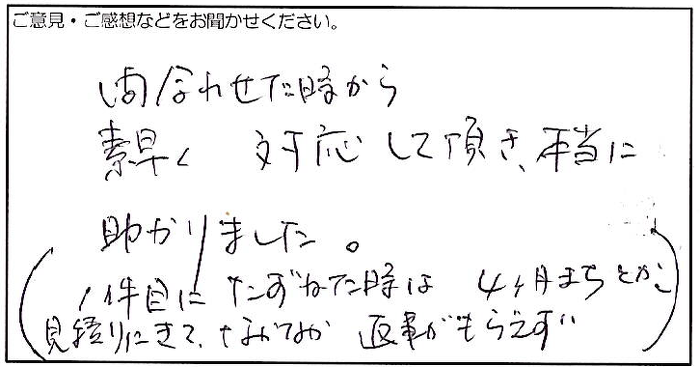 ご意見・ご感想などをお聞かせください。
問合わせた時から
素早く 対応して頂き、本当に
助かりました。
(1件目にたずねた時は 4ヶ月まちとか、
見積りにきて、なかなか 返事がもらえず)